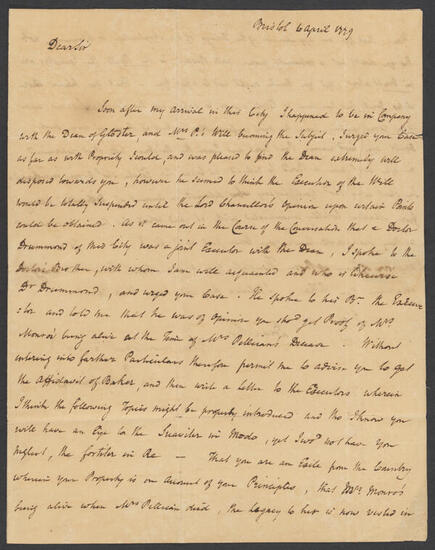 Bristol 6 April 1779
Dear Sir
Soon after my arrival in this City I happened to be in Company
with the Dean of Gloster, and Mrs P.'s Will becoming the Subject, I urged your Case
as far as with Propriety I could, and was pleased to find the Dean extremely well
disposed towards you, however he seemed to think the Execution of the Will
would be totally Suspended until the Lord Chancellor's Opinion upon certain Points
could be obtained. As it came out in the Course of the Conversation that a Doctor
Drummond of this City was a joint Executor with the Dean, I spoke to the
Doctors Brother, with whom I am well acquainted and who is likewise
Dr Drummond, and urged your Case. He spoke to his Br. the Execu
tor and told me that he was of Opinion you shod get Proof of Mrs
Monro's being alive at the Time of Mrs Pellerian's Decease. Without
entering into farther Particulars therefore permit me to advise you to get
the Affidavit of Baker, and then write a Letter to the Executors wherein
I think the following Topics might be properly introduced and tho I know you
will have an Eye to the Suaviter in Modo, yet I wod not have you
neglect, the fortiter in Re — That you are an Exile from the Country
wherein your Property is on Account of your Principles, that Mrs Monro's
being alive when Mrs Pellerian died, the Legacy to her is now vested in